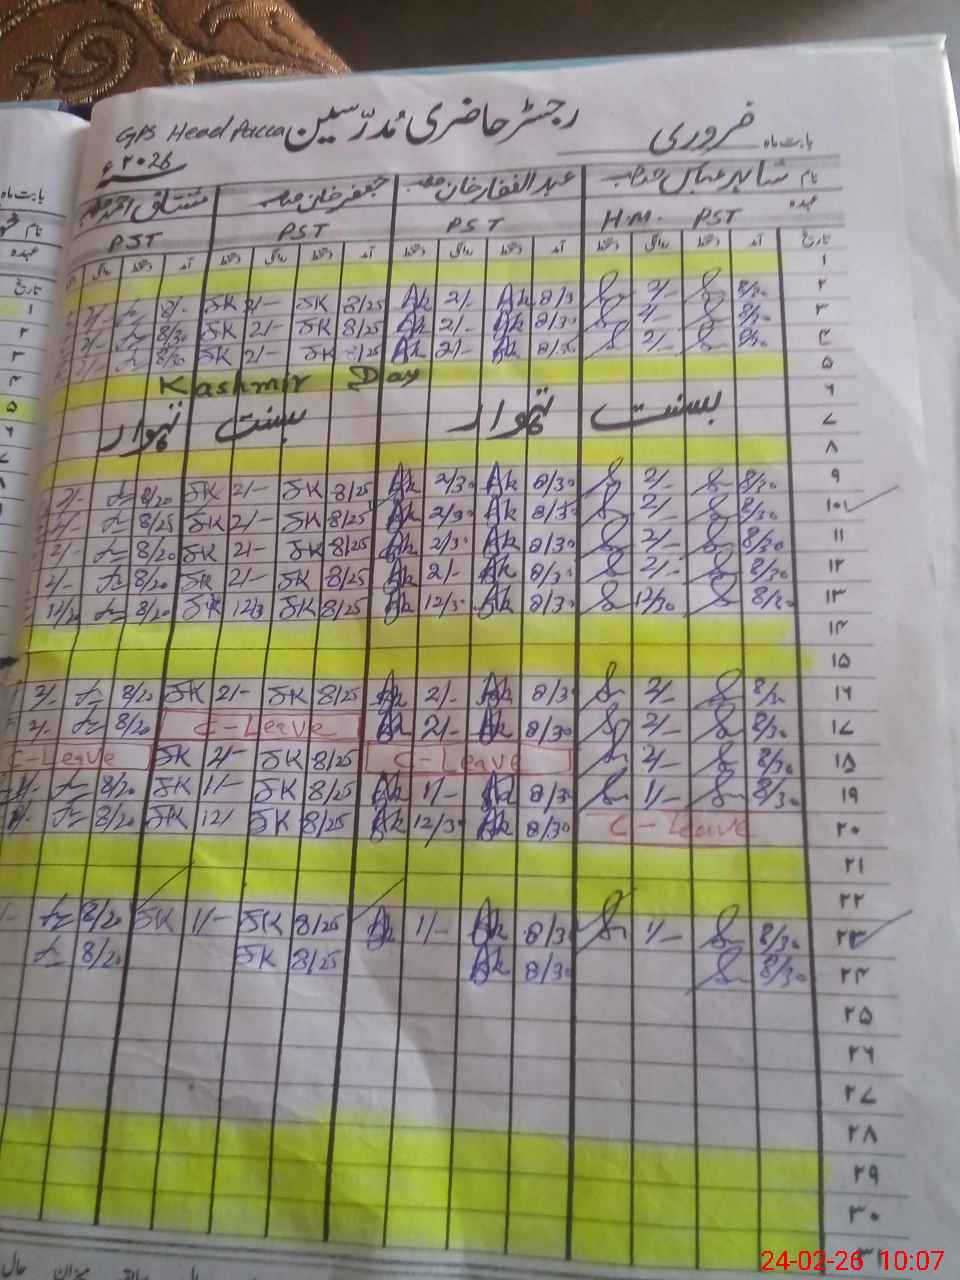 رجسٹر حاضری مُدرّسین GPS Head Pacca
بابت ماہ فروری ۲۰26ء
نام شاہد عباس صاحب عبدالغفار خان صاحب جعفر خان صاحب مشتاق احمد صاحب
عہدہ H.M. PST PST PST PST
تاریخ آمد دستخط روانگی دستخط آمد دستخط روانگی دستخط آمد دستخط روانگی دستخط آمد دستخط روانگی
۱
۲ 8/30 2/- 8/30 Ak 2/- Ak 8/25 JK 2/- JK
۳ 8/30 2/- 8/30 Ak 2/- Ak 8/25 JK 2/- JK 8/20 2/-
۴ 8/30 2/- 8/30 Ak 2/- Ak JK 2/- JK 8/20 2/-
۵ Kashmir Day
۶ بسنت تہوار بسنت تہوار
۷
۸
۹ 8/30 2/- 8/30 Ak 2/30 Ak 8/25 JK 2/- JK 8/20 2/-
۱۰ 8/30 2/- 8/30 Ak 2/30 Ak 8/25 JK 2/- JK 8/25 2/-
۱۱ 8/30 2/- 8/30 Ak 2/30 Ak 8/25 JK 2/- JK 8/20 2/-
۱۲ 8/30 2/- 8/30 Ak 2/- Ak 8/25 JK 2/- JK 8/20 2/-
۱۳ 8/30 12/30 8/30 Ak 12/30 Ak 8/25 JK 12/3 JK 8/20 12/30
۱۴
۱۵
۱۶ 8/30 2/- 8/30 Ak 2/- Ak 8/25 JK 2/- JK 8/20 2/-
۱۷ 8/30 2/- 8/30 Ak 2/- Ak C-Leave 8/20 2/-
۱۵ 8/30 2/- C-Leave 8/25 JK 2/- JK C-Leave
۱۹ 8/30 1/- 8/30 Ak 1/- Ak 8/25 JK 1/- JK 8/20 1/-
۲۰ C-Leave 8/30 Ak 12/30 Ak 8/25 JK 12/ JK 8/20
۲۱
۲۲
۲۳ 8/30 1/- 8/30 Ak 1/- Ak 8/25 JK 1/- JK 8/20
۲۴ 8/30 8/30 Ak 8/25 JK 8/20
۲۵
۲۶
۲۷
۲۸
۲۹
۳۰
۳۱
24-02-26 10:07